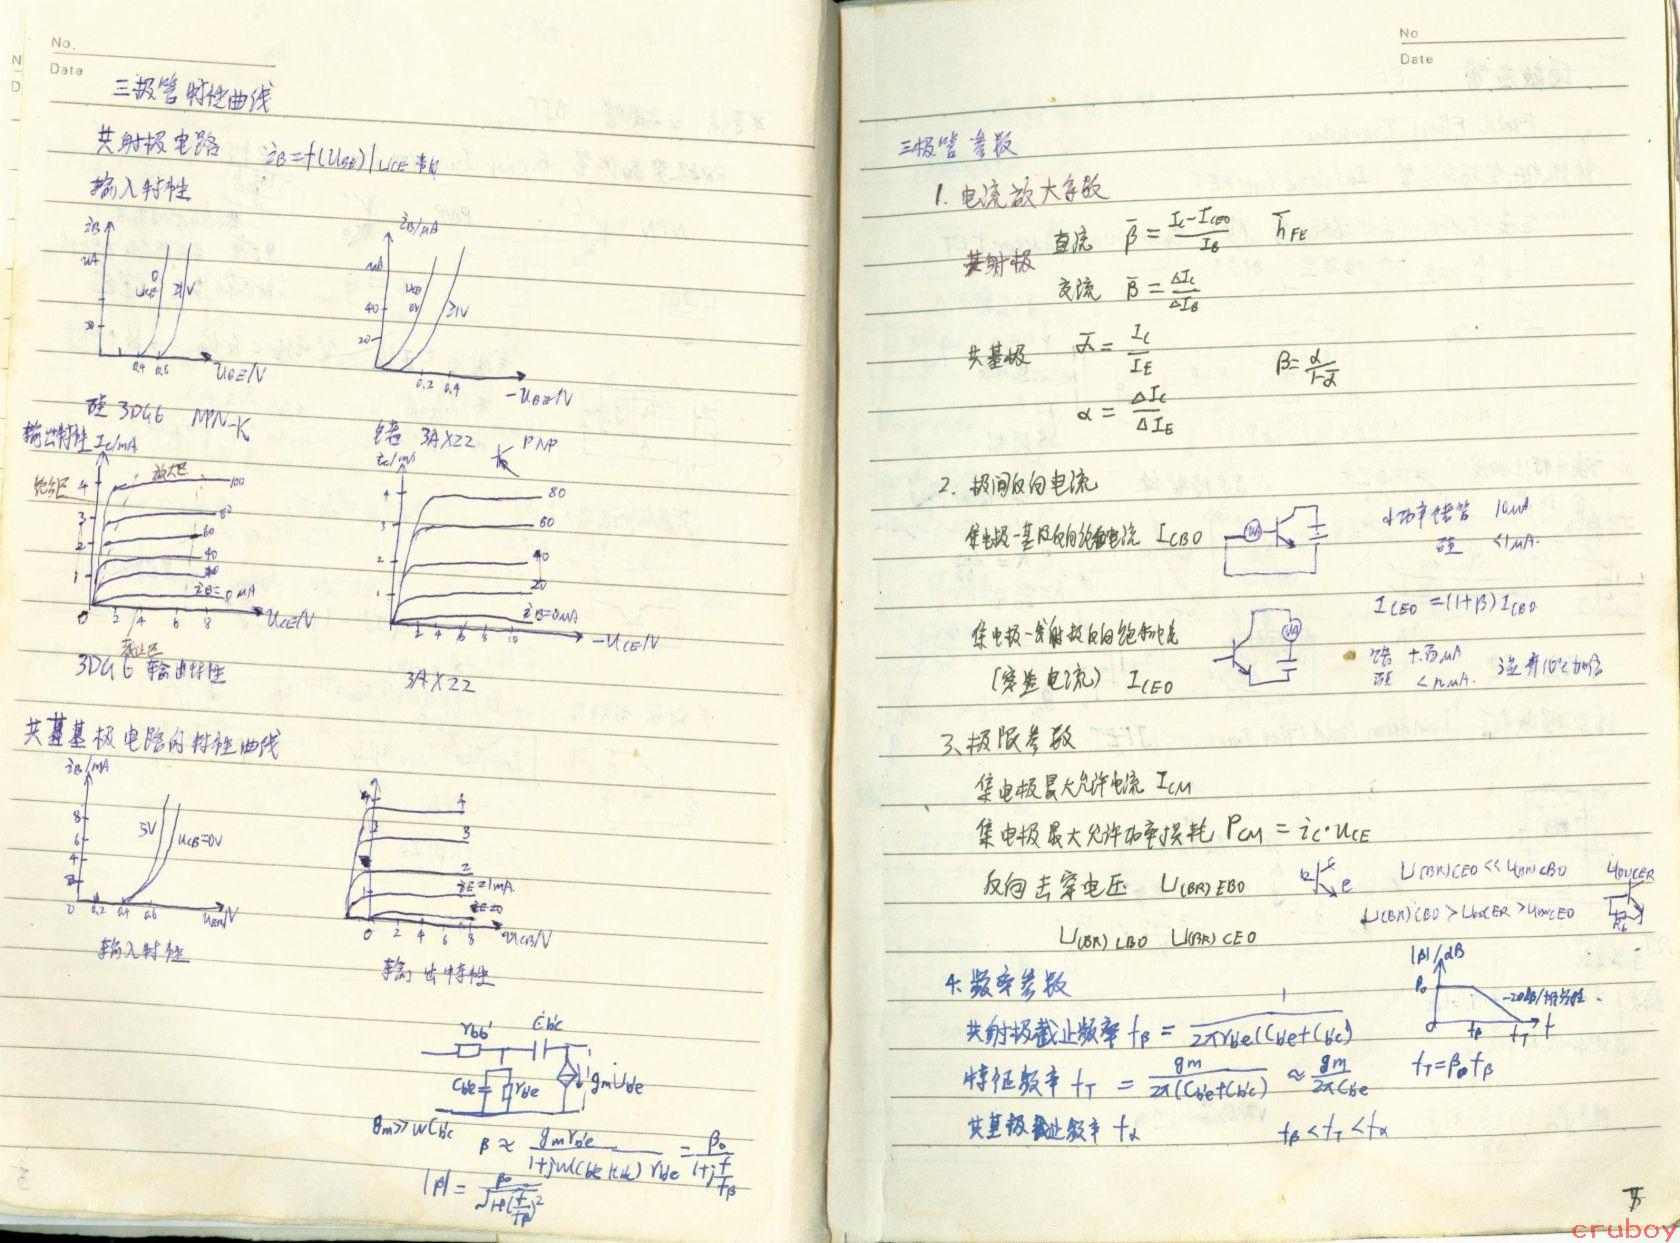 No.
Date
三极管特性曲线
共射极电路 iB=f(UBE)|UCE常数
输入特性
iB
uA
UCE
0
≥1V
20
0.4 0.6
UBE/V
iB/μA
μA
40
20
UCE
0V
≥1V
0.2 0.4
-UBE/V
硅 3DG6 NPN
锗 3AX22 PNP
输出特性 Ic/mA
饱和区
放大区
4
3
2
1
0
100
80
60
40
20
iB=0 mA
2 4 6 8
UCE/V
截止区
3DG6 输出特性
ic/mA
4
3
2
1
80
60
40
20
iB=0mA
2 4 6 8 10
-UCE/V
3AX22
共基极电路的特性曲线
iB/mA
8
6
4
2
0
5V
UCB=0V
0.2 0.4 0.6
UEB/V
输入特性
4
3
2
1
4
3
2
iE=1mA
iE=0
0 2 4 6 8
UCB/V
输出特性
rbb' Cb'c
Cb'e rb'e gmUb'e
gm≫wCb'c
β≈ gmrb'e / 1+jw(Cb'e+Cb'c)rb'e = β0 / 1+j f/fβ
|β|= β0 / √1+(f/fβ)²
No
Date
三极管参数
1. 电流放大系数
共射极
直流 β̄= Ic-ICEO / IB h̄FE
交流 β̄= ΔIc / ΔIB
共基极 ᾱ= Ic / IE β= α / 1-α
α= ΔIc / ΔIE
2. 极间反向电流
集电极-基极反向饱和电流 ICBO
μA
小功率锗管 10μA
硅 <1μA.
ICEO=(1+β)ICBO
集电极-发射极反向饱和电流
(穿透电流) ICEO
锗 十~百μA
硅 <几μA.
3、极限参数
集电极最大允许电流 ICM
集电极最大允许功率损耗 PCM=ic·UCE
反向击穿电压 U(BR)EBO
b c e
U(BR)CEO<<U(BR)CBO
U(BR)CER
U(BR)CBO>U(BR)CER>U(BR)CEO
Rb
U(BR)CBO U(BR)CEO
4. 频率参数
|β|/dB
β0
-20dB/十倍频程.
0 fβ fT f
共射极截止频率 fβ= 1 / 2πrb'e(Cb'e+Cb'c)
特征频率 fT= gm / 2π(Cb'e+Cb'c) ≈ gm / 2πCb'e fT=β0fβ
共基极截止频率 fα fβ<fT<fα
cruboy